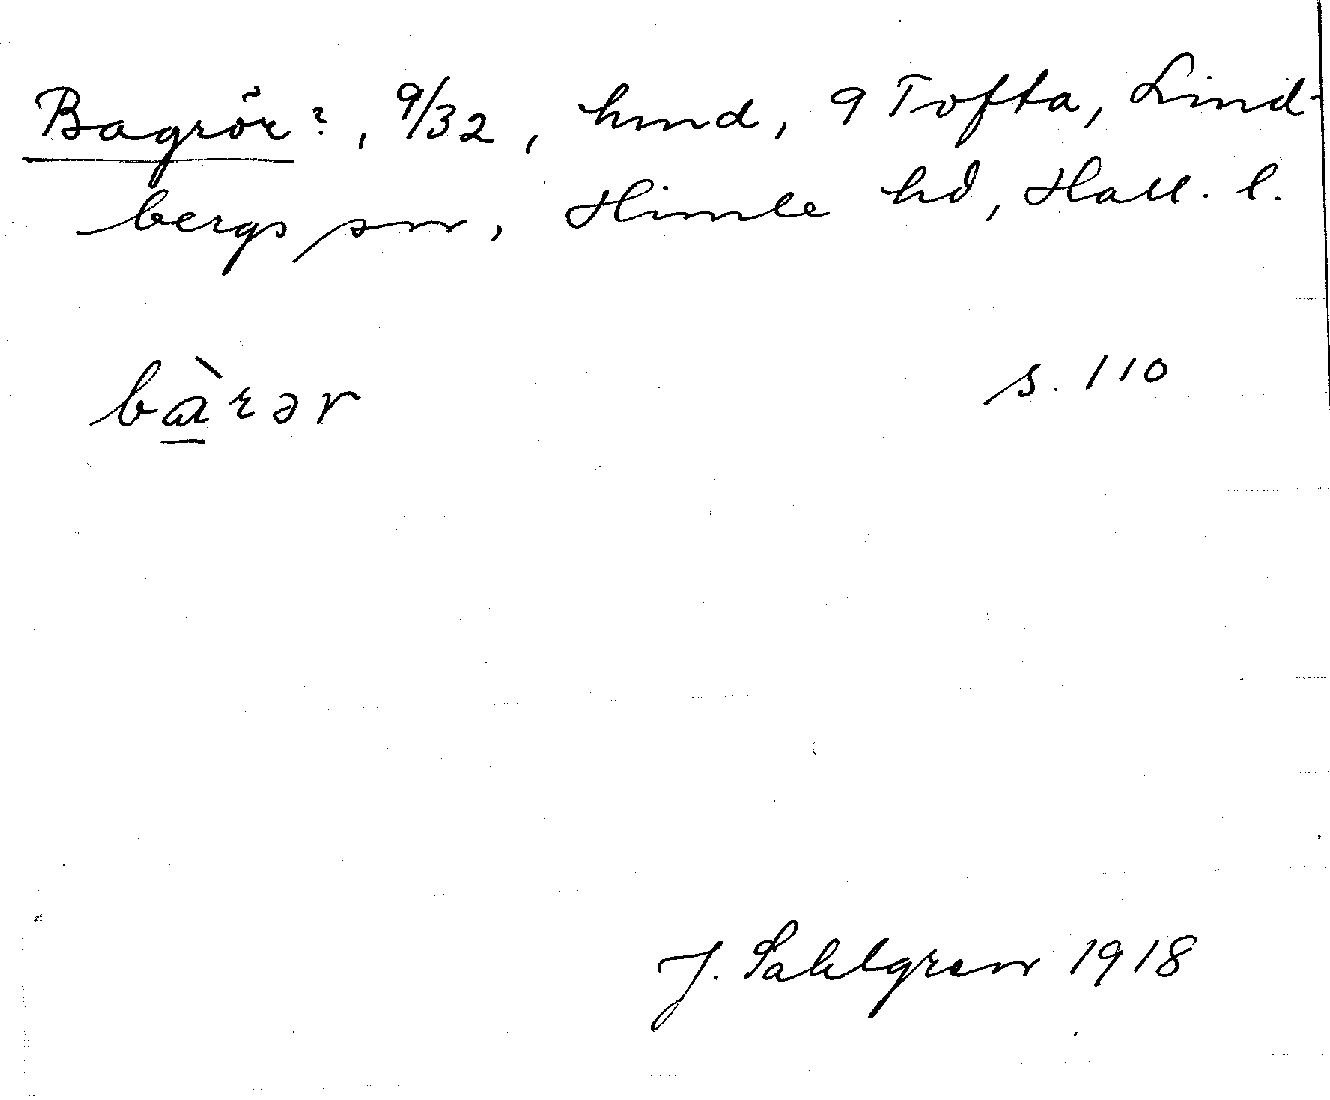 Bagrör?, 9/32, hmd, 9 Tofta, Lind-
bergs sn, Himle hd, Hall. l.
bàrər s. 110
J. Sahlgren 1918